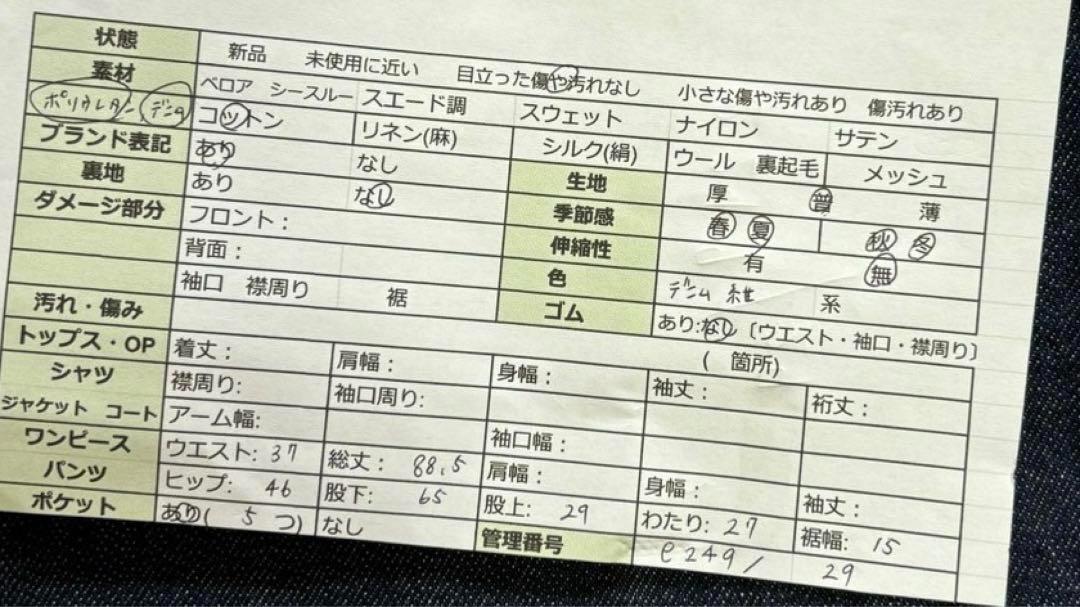 状態 新品 未使用に近い 目立った傷や汚れなし 小さな傷や汚れあり 傷汚れあり
素材 ベロア シースルー スエード調 スウェット ナイロン サテン
ポリウレタン デニム コットン リネン(麻) シルク(絹) ウール 裏起毛 メッシュ
ブランド表記 あり なし 生地 厚 普 薄
裏地 あり なし 季節感 春 夏 秋 冬
ダメージ部分 フロント： 伸縮性 有 無
背面： 色 デニム 紺 系
袖口 襟周り 裾 ゴム あり:なし〔ウエスト・袖口・襟周り〕
汚れ・傷み ( 箇所)
トップス・OP 着丈： 肩幅： 身幅： 袖丈： 裄丈：
シャツ 襟周り: 袖口周り:
ジャケット コート アーム幅: 袖口幅：
ワンピース ウエスト: 37 総丈： 88.5 肩幅： 身幅： 袖丈：
パンツ ヒップ: 46 股下： 65 股上： 29 わたり: 27 裾幅: 15
ポケット あり( 5 つ) なし 管理番号 e249/ 29